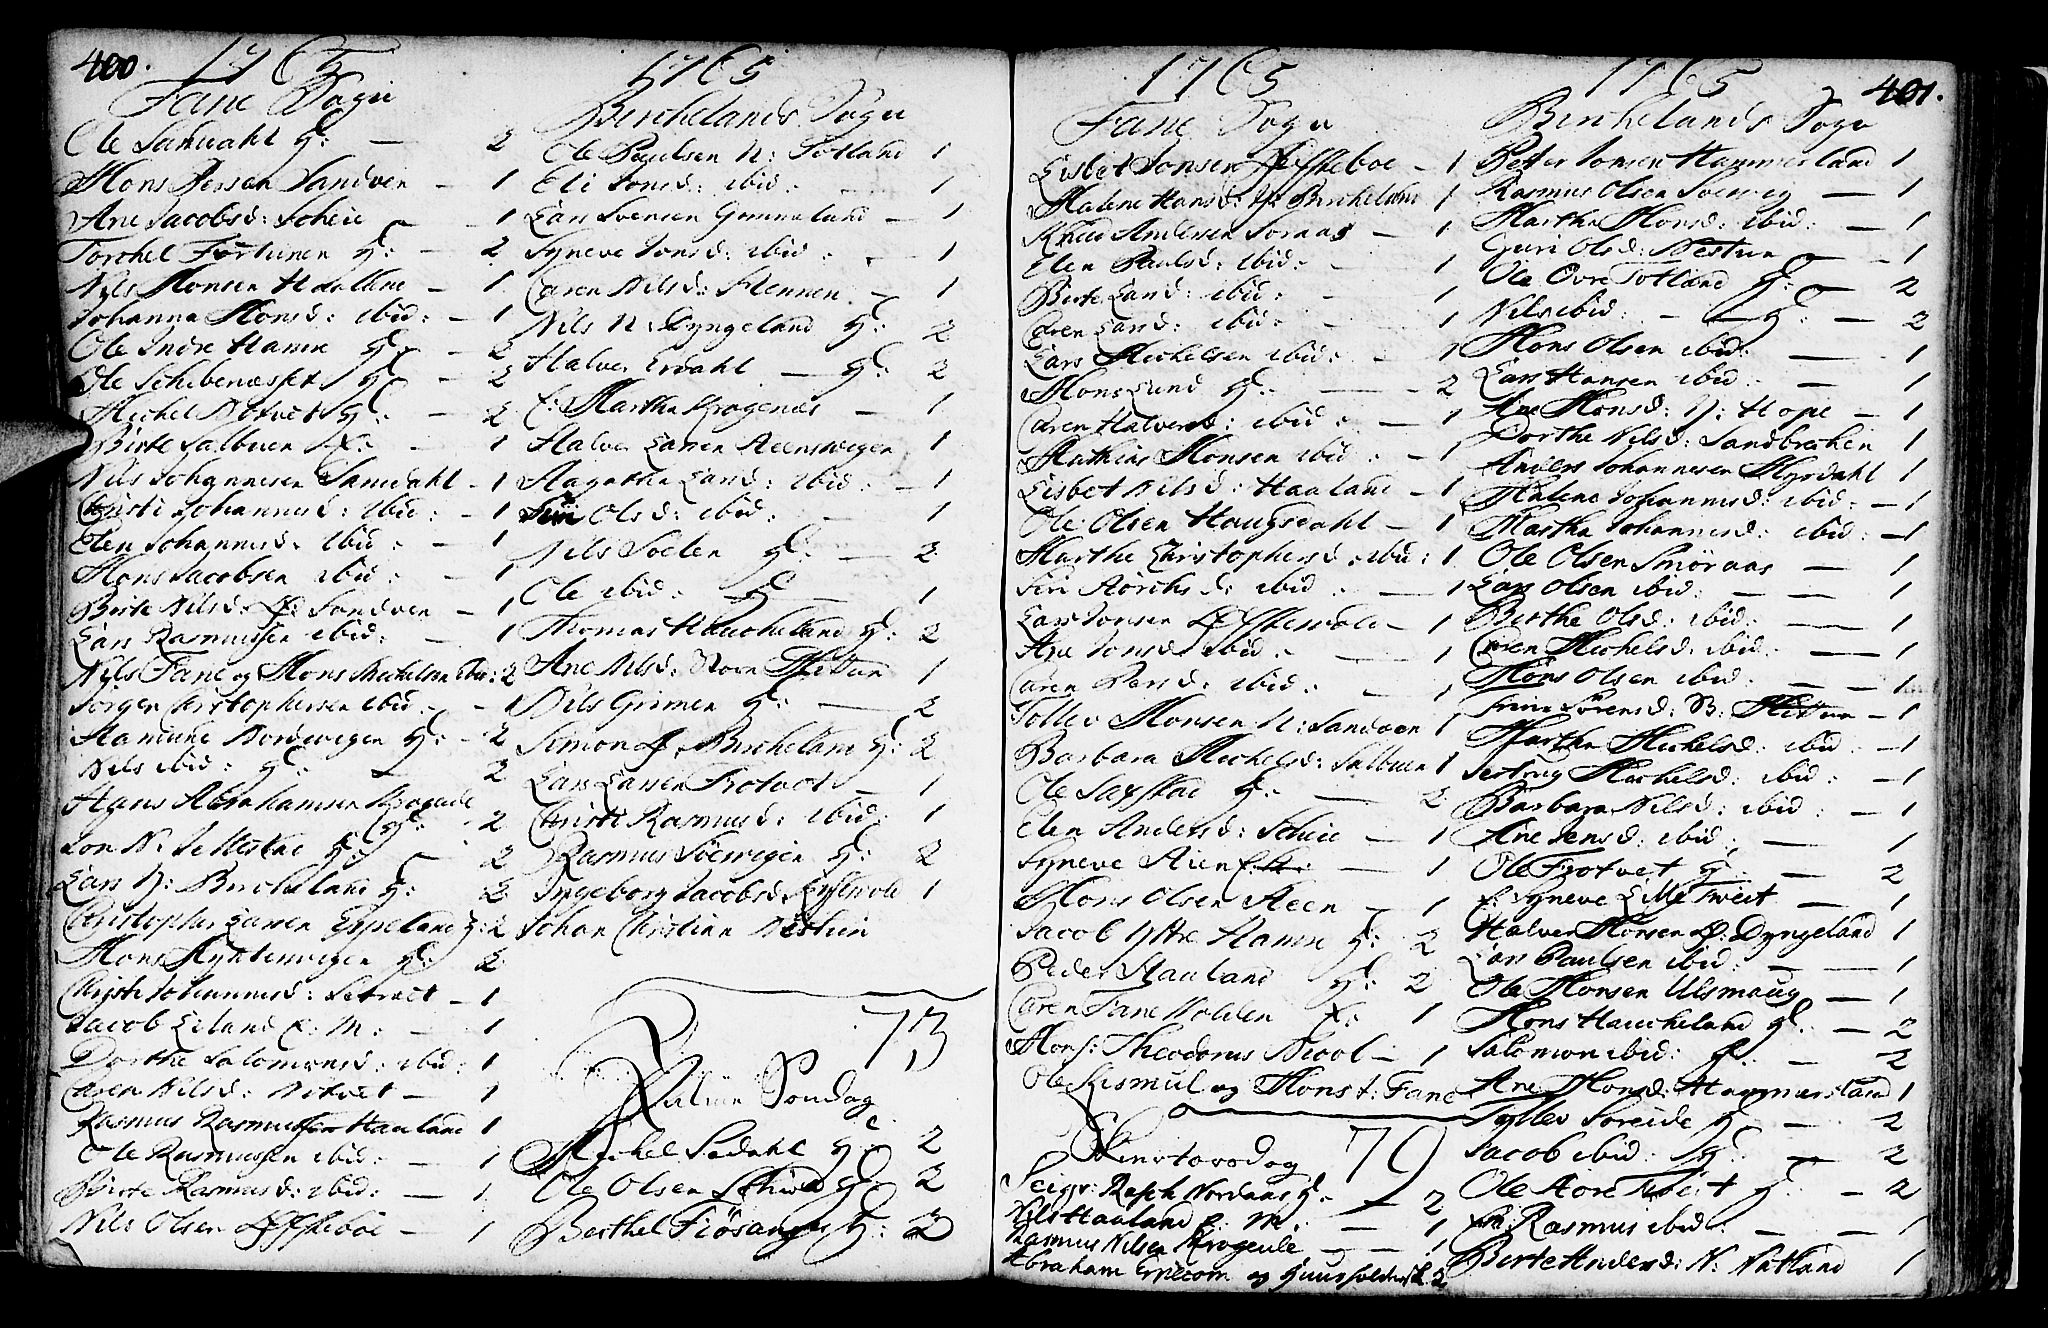 400. 1765
Fane Sogn
Ole Samdahl H: — 2
Mons Persen Sandven — 1
Ane Jacobsd: Scheie — 1
Torchel Fortunen H: 2
Nils Monsen Haalene — 1
Johanna Monsd: ibid: — 1
Ole Indre Hamre H: — 2
Ole Schibenæsset H: — 2
Michel Nøtvet H: — 2
Birte Salbuen X: — 1
Nils Johannesen Samdahl — 1
Christi Johannesd: ibid: — 1
Elen Johannesd: ibid: — 1
Mons Jacobsen ibid: — 1
Birte Nilsd: Ø: Sandven — 1
Lars Rasmussen ibid: — 1
Nils Fane og Mons Michelsen ibid: 2
Jørgen Christophersen ibid: — 1
Nordevigen H: — 2
Nils ibid: H: — 2
Hans Abrahamsen Krogeide
H: — 2
Jon N: H: — 2
Lars Y: Bircheland H: 2
Christopher Larsen Espeland H: 2
Mons H: 2
Christi Johannesd: — 1
Jacob Eiland E: M: — 1
Dorthe Salomonsd: ibid: 1
Caren Nilsd: Nøtvet — 1
Rasmus Rasmussen Haaland 1
Ole Rasmussen ibid: — 1
Birte Rasmusd: ibid: — 1
Nils Olsen Øfsteboe — 1
1765
Birchelands Sogn
Ole Paulsen N: Totland 1
Eli Jonsd: ibid: — 1
Lars Svensen Gommeland — 1
Syneve Jonsd: ibid: — 1
Caren Nilsd: Stennen — 1
Nils N: Dyngeland H: 2
Halver Erdahl — H: 2
E: Martha Krogenæs — 1
Halver Larsen Steensvegen 1
Aagatha Larsd: ibid: — 1
Siri Olsd: ibid: — 1
Nils Soelen H: — 2
Ole ibid: H: — 1
Thomas Haucheland H: 2
Ane Nilsd: Store Mildun 1
Nils Grimen H: — 2
Simon Ø: Bircheland H: 2
Lars Larsen Trotvet — 1
Christi Rasmusd: ibid: 1
Rasmus Søevigen H: 2
Ingeborg Jacobsd: 1
Johan Christian Nestun
73
Palme Søndag
Michel Sædahl H: 2
Ole Olsen H: 2
Berthel Fiøsanger H: 2
1765
Fane Sogn
Lisbet Jonsen Øfsteboe — 1
Malene Hansd: Y: Bircheland 1
Knud Andersen Soraas — 1
Elen Paulsd: ibid: — 1
Birte Larsd: ibid: — 1
Caren Larsd: ibid: — 1
Lars Michelsen ibid: — 1
Mons Lund H: — 2
Caren Halversd: ibid: — 1
Mathias Monsen ibid: — 1
Lisbet Nilsd: Haaland — 1
Ole Olsen Haugsdahl — 1
Marthe Christophersd: ibid: 1
Siri ibid: — 1
Lars Jonsen — 1
Ane Jonsd: ibid: — 1
Caren Persd: ibid: — 1
Tollev Monsen N: Sandven 1
Barbara Michelsd: Salbuen 1
Ole Saxstad H: — 2
Elen Andersd: Scheie — 1
Syneve — 1
Mons Olsen Steen — 1
Jacob Ytre Hamre H: 2
Peder Haaland H: 2
Caren Fane Nolden X: 1
Mons: Theodorus Nicol — 1
Ole Rismul og Mons t: Fane
79
Skiertorsdag
Seigr: Rasch Nordaas H: — 2
Nils Haaland E: M: — 1
Rasmus Nilsen Krogeide — 1
Abraham og Huusholderske 2
1765 401.
Birchelands Sogn
Petter Jonsen Hammerland 1
Rasmus Olsen Søevig — 1
Martha Monsd: ibid: — 1
Guri Olsd: Nestun — 1
Ole Øvre Totland H: — 2
Nils ibid: — H: — 2
Mons Olsen ibid: — 1
Lars Hansen ibid: — 1
Ane Monsd: Y: Hope — 1
Dorthe Nilsd: Sandbrechen 1
Anders Johannesen Myrdahl 1
Malene Johannesd: ibid: — 1
Martha Johannesd: ibid: — 1
Ole Olsen Smøraas — 1
Lars Olsen ibid: — 1
Berthe Olsd: ibid: — 1
Caren Michelsd: ibid: — 1
Mons Olsen ibid: — 1
Sørensd: B: Mildun — 1
Martha Michelsd: ibid: — 1
Michelsd: ibid: — 1
Barbara Nilsd: ibid: — 1
Ane Jensd: ibid: — 1
Ole Trotvet H: — 2
E: Syneve Lille Tveit — 1
Halver Monsen Ø: Dyngeland 1
Lars Paulsen ibid: — 1
Ole Monsen Ulsmaug — 1
Mons Haucheland H: — 2
Salomon ibid: H: — 2
Ane Monsd: Hammersland 1
Tyllev Soreide H: — 2
Jacob ibid: H: — 2
Ole Aure Tveit H: — 2
Rasmus ibid: — 1
Berte Andersd: N: Natland 1